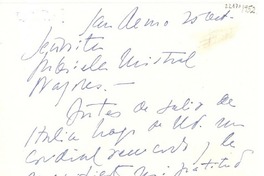 San Remo 20 oct.
Señorita
Gabriela Mistral
Nápoles.—
Antes de salir de
Italia hago de Ud. un
cordial recuerdo y le
mi gratitud